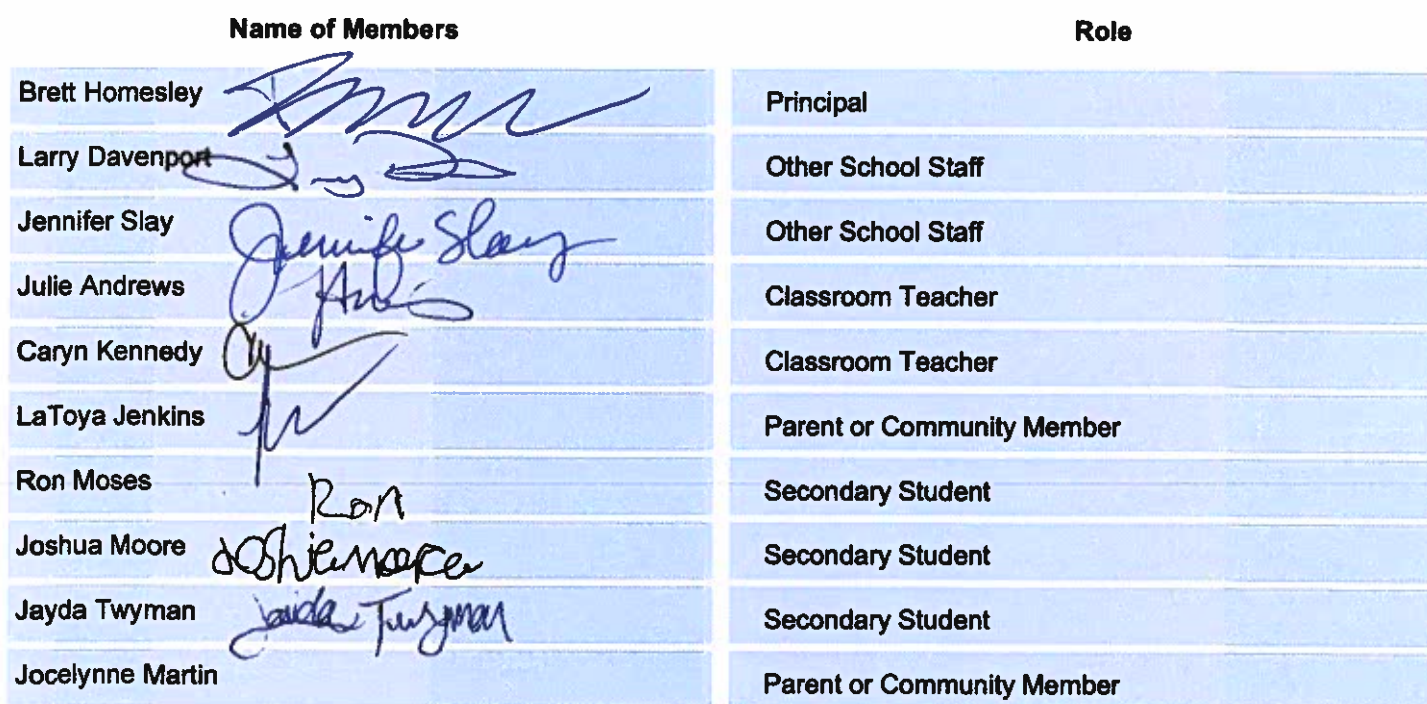 Name of Members Role
Brett Homesley Principal
Larry Davenport Other School Staff
Jennifer Slay Jennifer Slay Other School Staff
Julie Andrews Classroom Teacher
Caryn Kennedy Classroom Teacher
LaToya Jenkins Parent or Community Member
Ron Moses Ron Secondary Student
Joshua Moore Secondary Student
Jayda Twyman Twyman Secondary Student
Jocelynne Martin Parent or Community Member